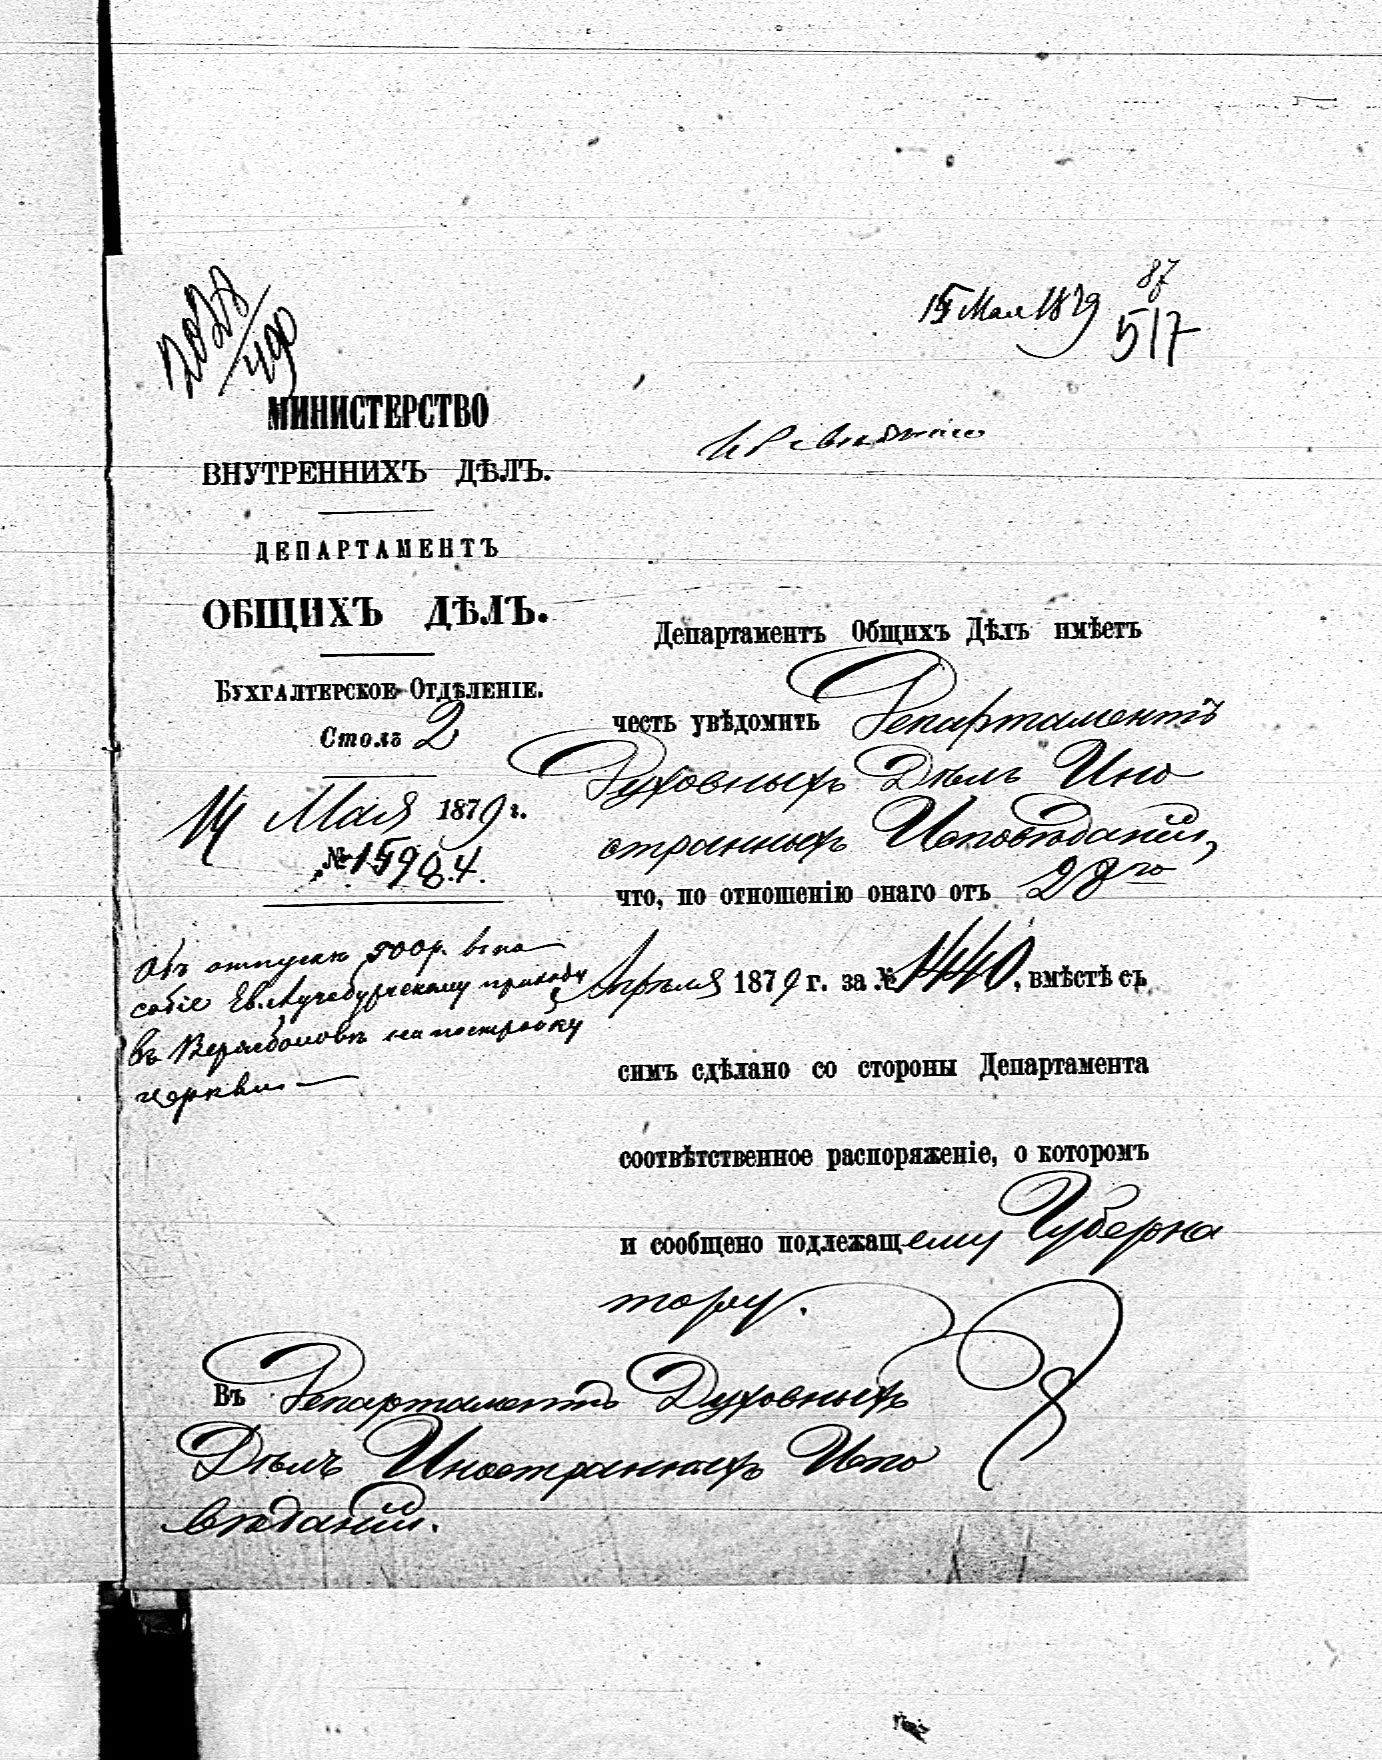 2028/490
15 Мая 1879
87
517
Къ свѣдѣнію
МИНИСТЕРСТВО
ВНУТРЕННИХЪ ДѢЛЪ.
ДЕПАРТАМЕНТЪ
ОБЩИХЪ ДѢЛЪ.
БУХГАЛТЕРСКОЕ ОТДѢЛЕНІЕ.
Столъ 2
14 Мая 1879 г.
№ 15984.
Объ отпускѣ 500 р. въ по
собіе Ев. Аугсбургскому приходу
въ на постройку
церкви.
Департаментъ Общихъ Дѣлъ имѣетъ
честь увѣдомить Департаментъ
Духовныхъ Дѣлъ Ино
странныхъ Исповѣданій,
что, по отношенію онаго отъ 28го
Апрѣля 1879 г. за № 1440, вмѣстѣ съ
симъ сдѣлано со стороны Департамента
соотвѣтственное распоряженіе, о которомъ
и сообщено подлежащему Губерна
тору.
Въ Департаментъ Духовныхъ
Дѣлъ Иностранныхъ Испо
вѣданій.